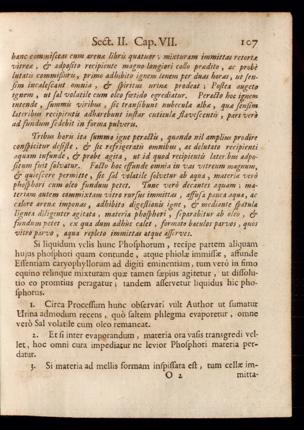 Sect. II. Cap. VII. 107
hanc commisceas cum arena libris quatuor, mixturam immittas retortæ
vitreæ, & adposito recipiente magno longiori collo prædito, ac probè
lutatis commissuris, primo adhibito ignem lenem per duas horas, ut sen-
sim incalescant omnia, & spiritus urinæ prodeat; Postea augeto
ignem, ut sal volatile cum oleo fœtido egrediatur. Peractis hoc ignem
intende, summis viribus, sic transibunt nubecula alba, quæ sensim
lateribus recipientis adhærebunt instar cuticula flavescentis, pars verò
ad fundum sedebit in forma pulveris.
Tribus horis ita summo igne peractis, quando nil amplius prodire
conspicitur desiste, & sic refrigeratis omnibus, ac delutato recipienti
aquam infunde, & probe agita, ut id quod recipientis lateribus adpo-
situm fuit solvatur. Facto hoc effunde omnia in vas vitreum magnum,
& quiescere permitte, sic sal volatile solvetur ab aqua, materia verò
phosphori cum oleo fundum petet. Tunc verò decantes aquam; ma-
teriam autem commixtam vitro rursus immittas, affusa pauca aqua, ac
calore arenæ imponas, adhibito digestionis igne, & mediante spatula
lignea diligenter agitata, materia phosphori, separabitur ab oleo, &
fundum petet, ex qua dum adhuc calet, formato baculos parvos, quos
vitro parvo, aqua repleto immittas atque asserves.
Si liquidum velis hunc Phosphorum, recipe partem aliquam
hujus phosphori quam contunde, atque phiolæ immisse, affunde
Essentiam caryophyllorum ad digiti eminentiam, tum verò in fimo
equino relinque mixturam quæ tamen sæpius agitetur, ut dissolu-
tio eo promtius peragatur; tandem asservetur liquidus hic pho-
sphorus.
1. Circa Processum hunc observari vult Author ut sumatur
Urina admodum recens, quò saltem phlegma evaporetur, omne
verò Sal volatile cum oleo remaneat.
2. Et si inter evaporandum, materia ora vasis transgredi vel-
let, hoc omni cura impediatur ne levior Phosphori materia per-
datur.
3. Si materia ad mellis formam inspissata est, tum cellæ im-
O 2 mitta-